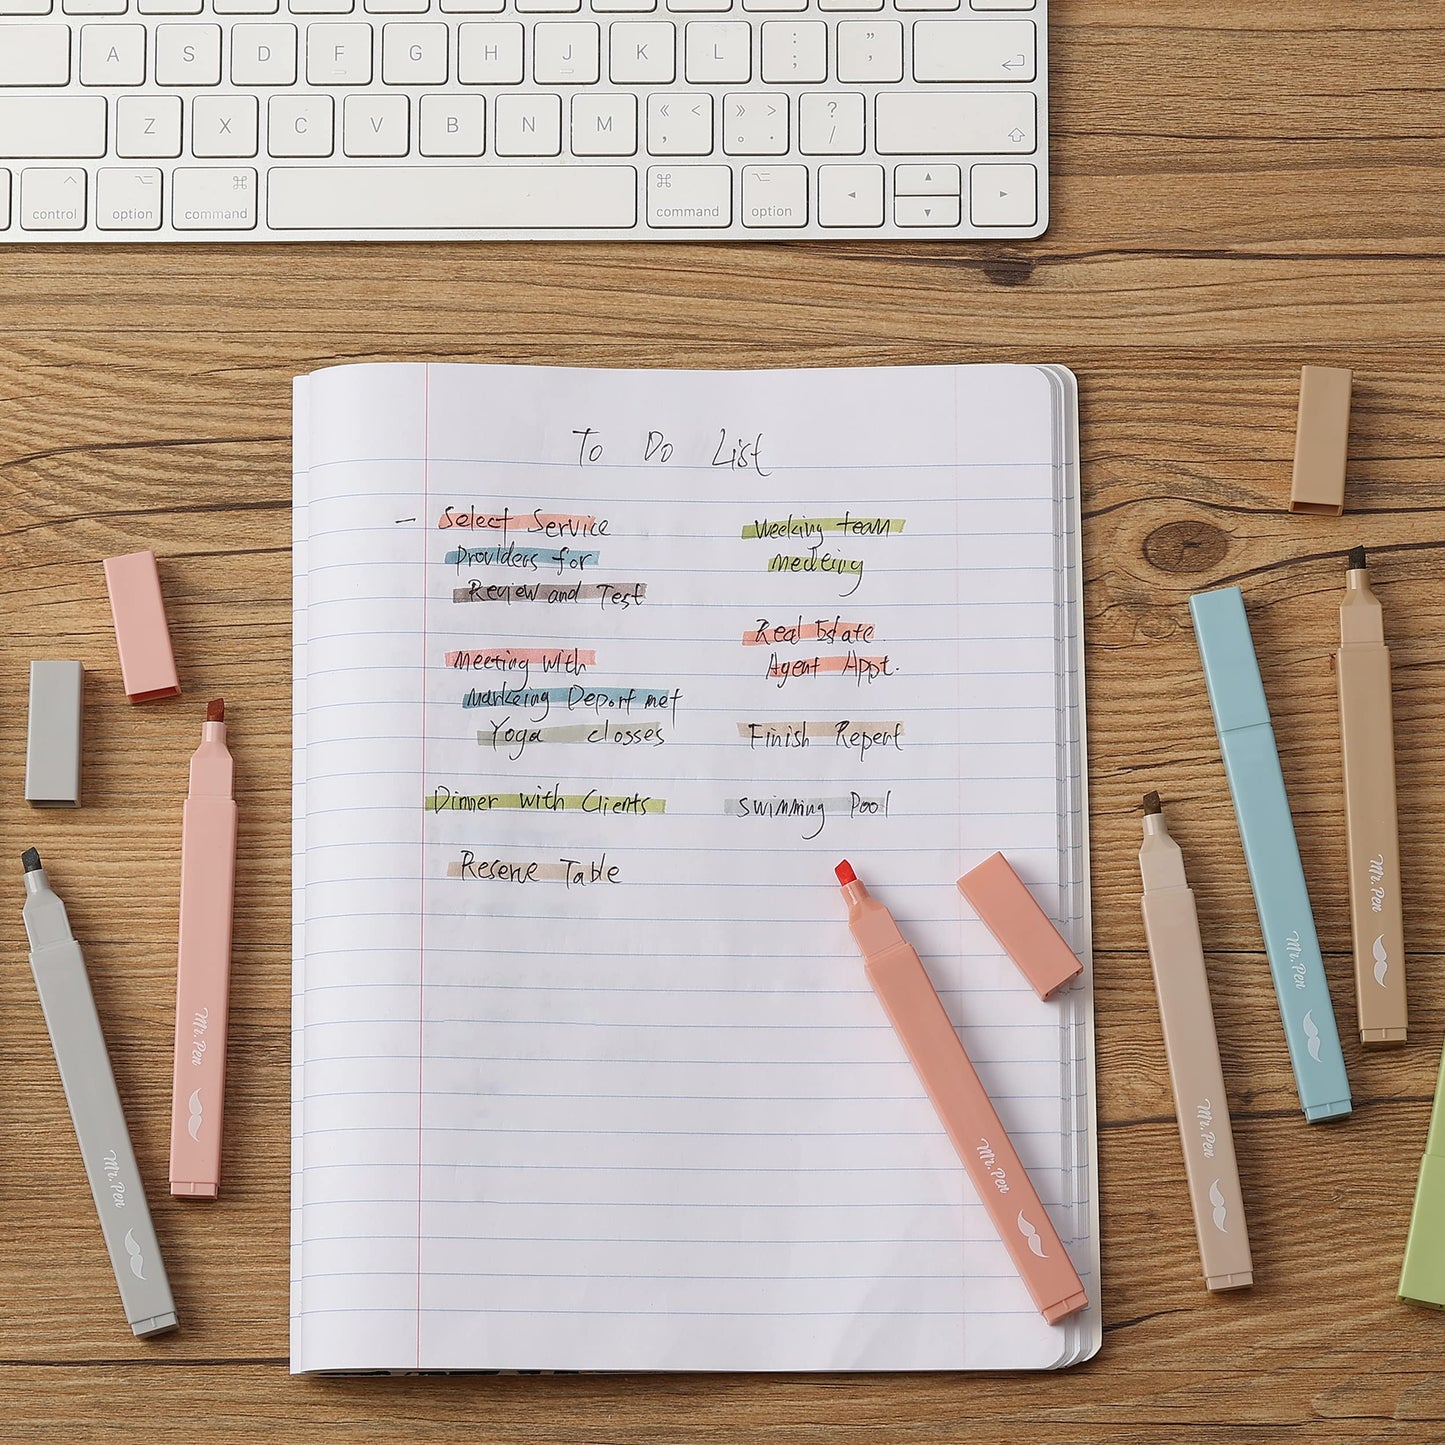 A S D F G H J K L : ; " ,
Z X C V B N M « < , » > 。 . ? /
control option command command option
To Do List
— Select Service
Providers for
Review and Test
Meeting with
Markeing Deportmet
Yoga closses
Dinner with Clients
Reserve Table
Weeking team
Medeing
Real Estate
Agent Appt.
Finish Repert
Swimming Pool
Mr. Pen
Mr. Pen
Mr. Pen
Mr. Pen
Mr. Pen
Mr. Pen